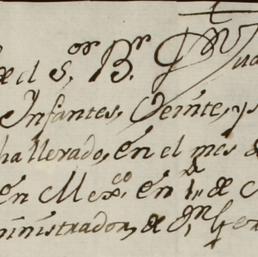 el S.or B.r Jua
Infantes, Veinte, y s
ha llevado, en el mes d
en Mex.co en 1.o de
ministrador, de D.n Ger